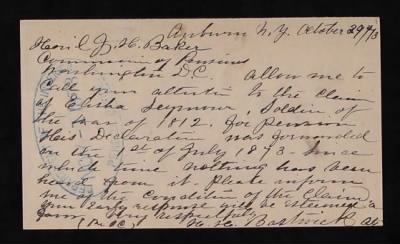 Auburn N.Y. October 29th/73
Hon J. H. Baker
Commissioner of Pensions
Washington D.C. allow me to
Call your attention to the Claim
of Elisha Seymour Soldier of
the war of 1812. for pension
His Declaration was forwarded
on the 1st of July 1873 - Since
which time nothing has been
heard from it. Please inform
me of the Condition of the Claim
your early response will be esteemed a
favor Very respectfully
H. H. Bostwick atty